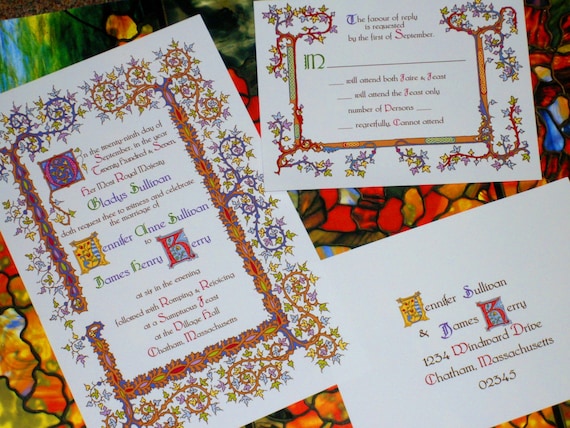 On the twenty-ninth day of
September, in the year
Twenty Hundred & Seven,
Her Most Royal Majesty
Gladys Sullivan
doth request thee to witness and celebrate
the marriage of
Jennifer Anne Sullivan
to
James Henry Kerry
at six in the evening
followed with Romping & Rejoicing
at a Sumptuous Feast
at the Village Hall
Chatham, Massachusetts
The favour of reply
is requested
by the first of September.
M
___ will attend both Faire & Feast
___ will attend the Feast only
number of Persons ___
___ regretfully, Cannot attend
Jennifer Sullivan
& James Kerry
1234 Windward Drive
Chatham, Massachusetts
02345